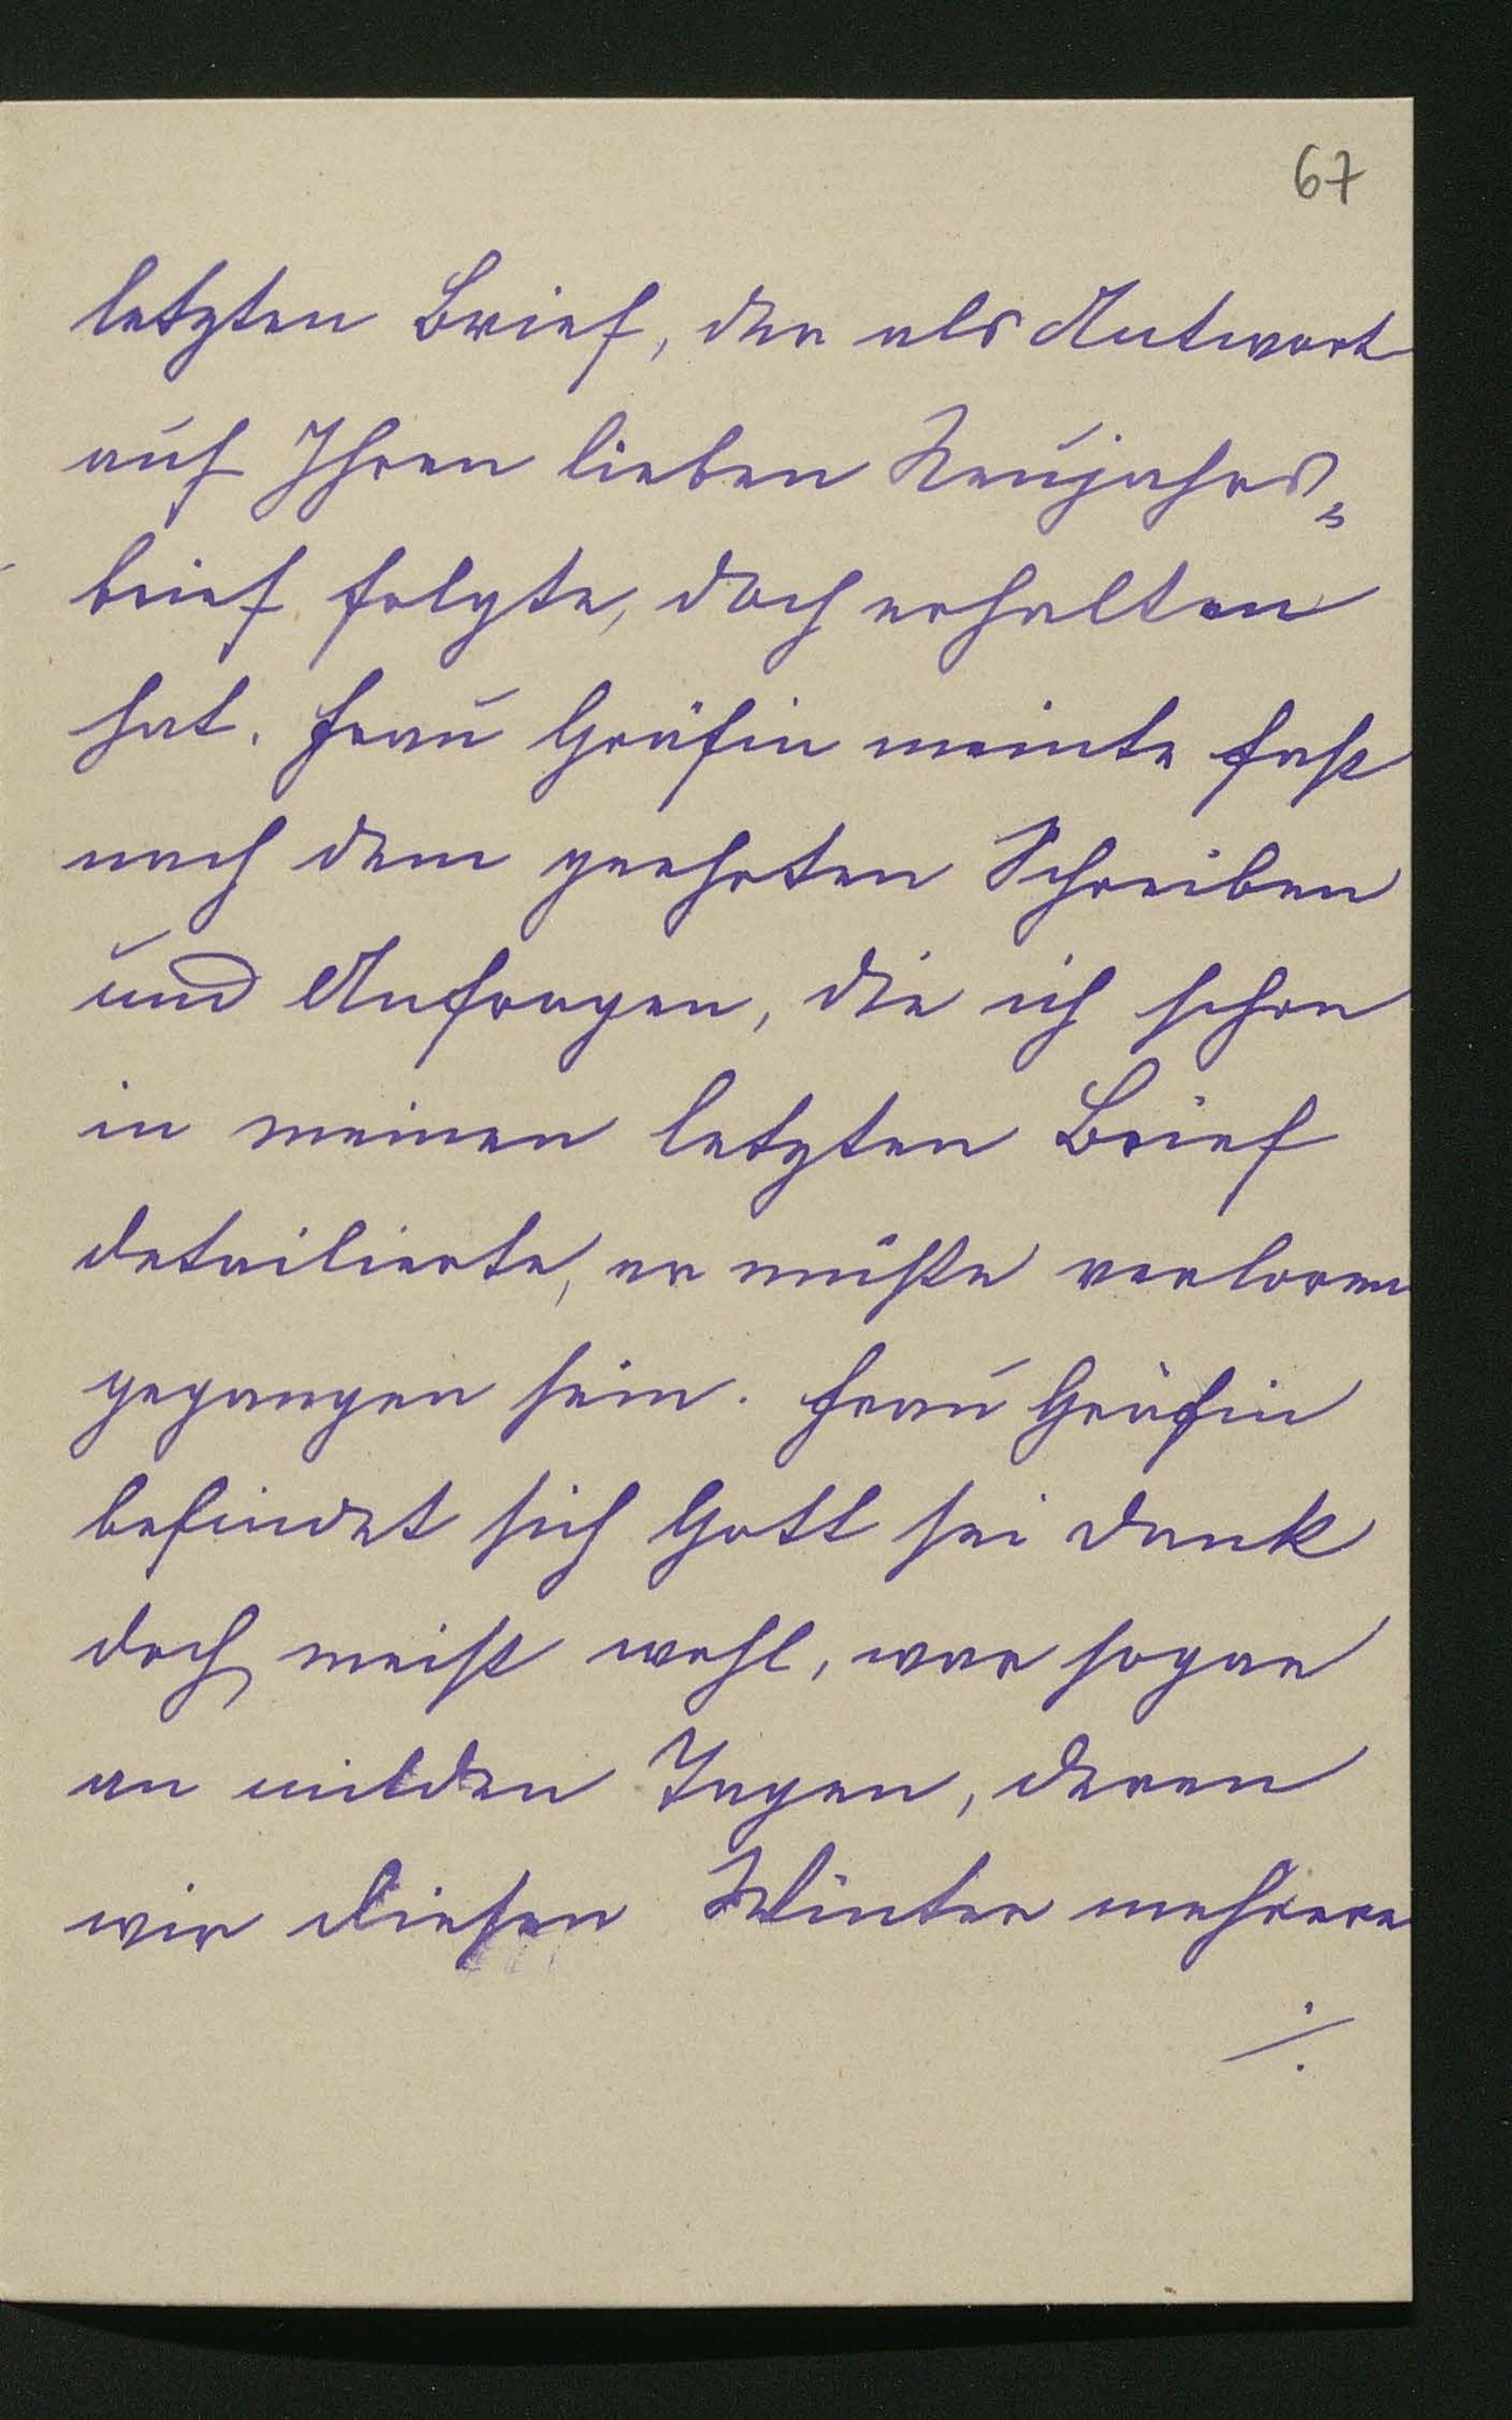 67
letzten Brief, der als Antwort
auf Ihren lieben Neujahrs-
brief folgte, doch erhalten
hat. Frau Gräfin meinte fast
nach dem geehrten Schreiben
und Anfragen, die ich schon
in meinen letzten Brief
detailierte, er müßte verloren
gegangen sein. Frau Gräfin
befindet sich Gott sei dank
doch meist wohl, war sogar
an milden Tagen, deren
wir diesen Winter mehrere
./.